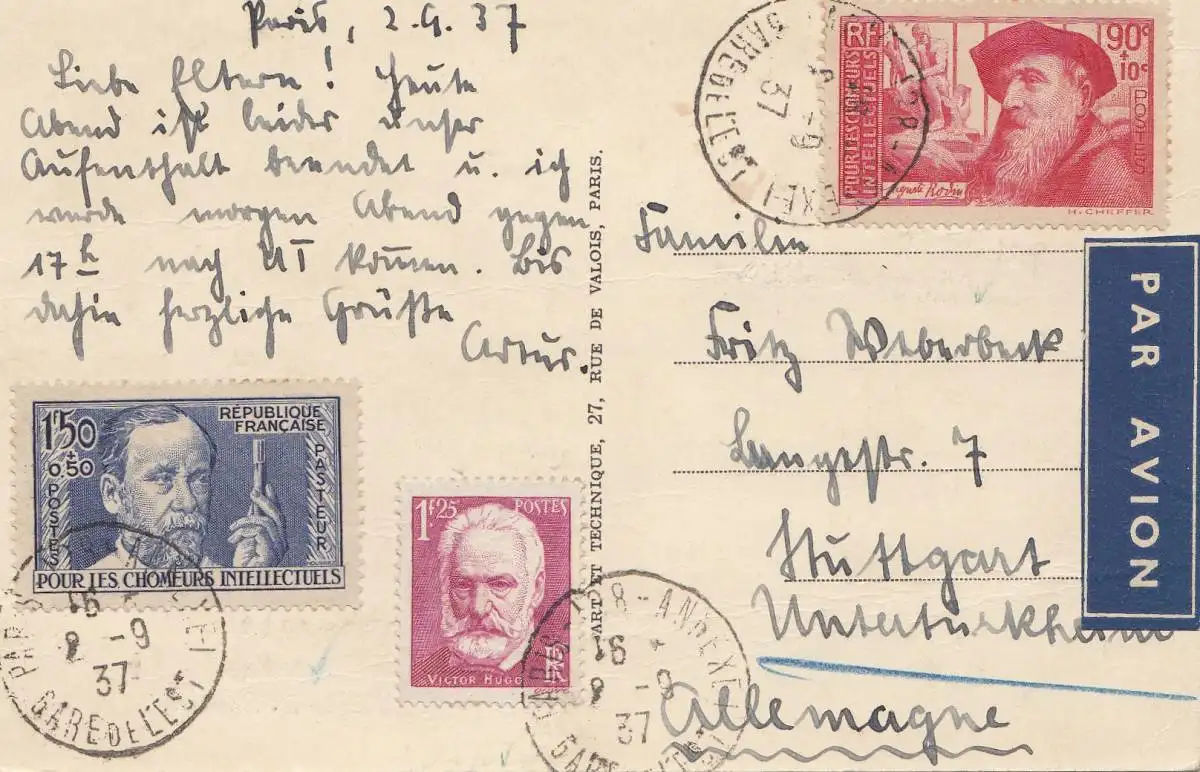 Paris, 2.9.37
Liebe Eltern! Heute
Abend ist leider unser
Aufenthalt beendet u. ich
werde morgen Abend gegen
17h nach UT kommen. Bis
dahin herzliche Grüße
Artur.
RÉPUBLIQUE
FRANÇAISE
1f50
+50
POSTES
PASTEUR
POUR LES CHOMEURS INTELLECTUELS
PARIS
16
2 -9
37
GARE DE L'EST
1f.25 POSTES
VICTOR HUGO
RF
8 - ANNEXE 1
16
2 -9
37
PARIS GARE DE L'EST
ART ET TECHNIQUE, 27, RUE DE VALOIS, PARIS.
RF
90c
+
10c
POSTES
POUR LES CHOMEURS
INTELLECTUELS
Auguste Rodin
H. CHEFFER
ANNEXE 1
-9
37
GARE DE L'EST
Familie
Fritz Weberbeck
Langestr. 7
Stuttgart
Untertürkheim
Allemagne
PAR AVION